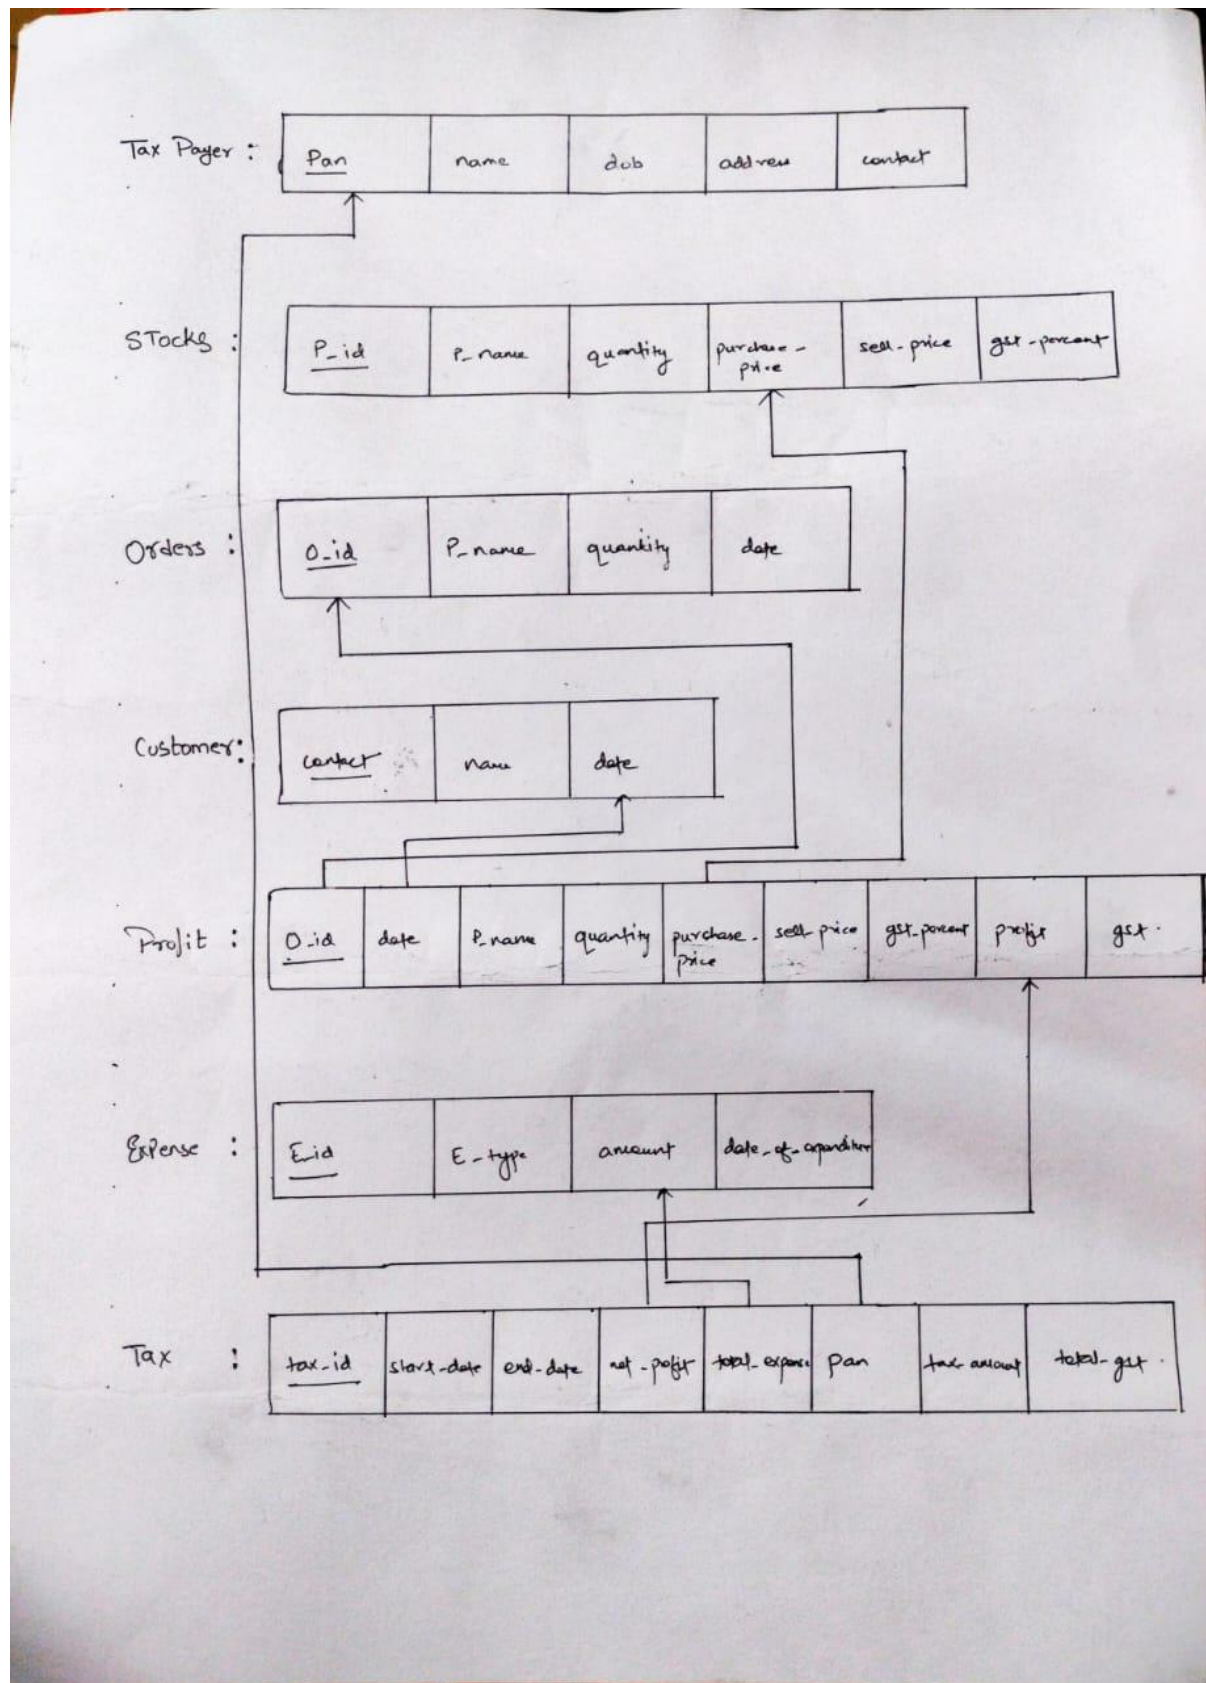 Tax Payer : Pan name dob address contact
Stocks : P_id P_name quantity purchase_ sell_price gst_percent
price
Orders : O_id P_name quantity date
Customer: contact name date
Profit : O_id date P_name quantity purchase_ sell_price gst_percent profit gst.
price
Expense : E_id E_type amount date_of_expenditure
Tax : tax_id start_date end_date net_profit total_expense pan tax_amount total_gst.